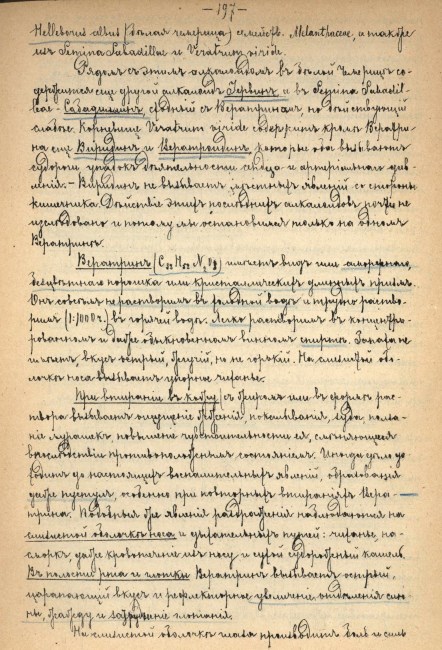 — 197 —
Helleborus albus (бѣлая чемерица) семейств. Melanthaceae, а также
изъ Semina Sabadillae и Veratrum viride.
Рядомъ съ этимъ алкалоидомъ въ бѣлой Чемерицѣ со-
держится еще другой алкалоидъ Іервинъ, и въ Semina Sabadil-
lae - Сабадиллинъ, сходный съ Вератриномъ, но дѣйствующій
слабѣе. Корневище Veratrum viride содержитъ кромѣ Вератри-
на еще Виридинъ и Вератроидинъ, которые оба вызываютъ
судороги, упадокъ дѣятельности сердца и артеріальнаго дав-
ленія. - Виридинъ не вызываетъ мѣстныхъ явленій со стороны
кишечника. Дѣйствіе этихъ послѣднихъ алкалоидовъ почти не
изслѣдовано и потому мы остановимся только на одномъ
Вератринѣ.
Вератринъ имѣетъ видъ или аморфнаго,
безцвѣтнаго порошка или кристаллическихъ длинныхъ призмъ.
Онъ совсѣмъ не растворимъ въ холодной водѣ и трудно раство-
римъ (1:1000 ч.) въ горячей водѣ. Легко растворимъ въ концентри-
рованномъ и даже обыкновенномъ винномъ спиртѣ. Запаха не
имѣетъ, вкусъ острый, жгучій, но не горькій. На слизистой обо-
лочкѣ носа вызываетъ упорное чиханье.
При втираніи въ кожу съ жиромъ или въ формѣ рас-
твора вызываетъ ощущеніе жженія, покалыванія, зуда, полза-
нія мурашекъ, повышеніе чувствительности ея, смѣняющееся
впослѣдствіи противоположнымъ состояніемъ. Иногда дѣло до-
ходитъ до настоящихъ воспалительныхъ явленій, образованія
даже пустулъ, особенно при повторныхъ втираніяхъ Вера-
трина. Подобныя же явленія раздраженія наблюдаются на
слизистой оболочкѣ носа и дыхательныхъ путей: чиханье, на-
сморкъ, даже кровотеченіе изъ носу и сухой судорожный кашель.
Въ полости рта и глотки Вератринъ вызываетъ острый,
царапающій вкусъ и рефлекторное увеличеніе отдѣленія слю-
ны, жажду и затрудненіе глотанія.
На слизистой оболочкѣ глаза производитъ боль и силь